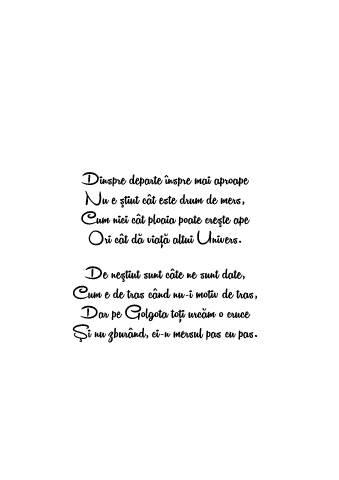 Dinspre departe înspre mai aproape
Nu e ştiut cât este drum de mers,
Cum nici cât ploaia poate creşte ape
Ori cât dă viaţă altui Univers.

De neştiut sunt câte ne sunt date,
Cum e de tras când nu-i motiv de tras,
Dar pe Golgota toţi urcăm o cruce
Şi nu zburând, ci-n mersul pas cu pas.